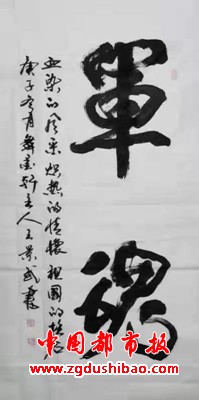 軍魂
血染的风采炽热的情怀祖国的
庚子冬月舞墨轩主人王景武书
中国都市报
www.zgdushibao.com